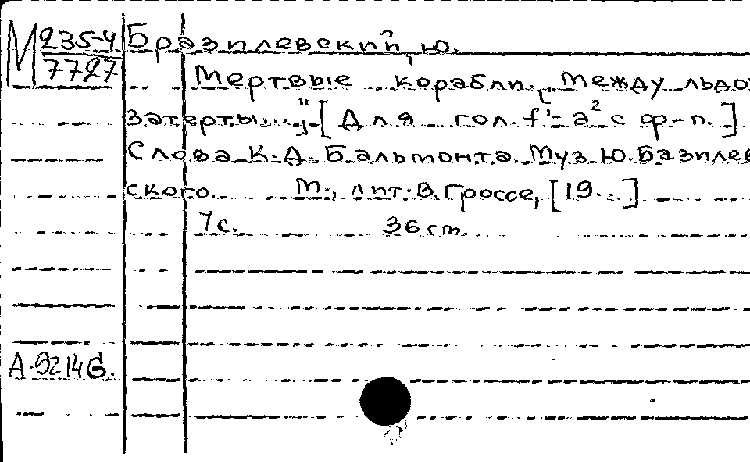 М 235-4 Бразилевский, Ю.
7727 Мертвые корабли. „Между льдо
затерты...“ [Для гол. f'-a² с ф-п.]
Слова К.Д. Бальмонта. Муз. Ю. Базилев
ского. М., лит. В. Гроссе, [19...]
7 с. 36 см.
А-92146.